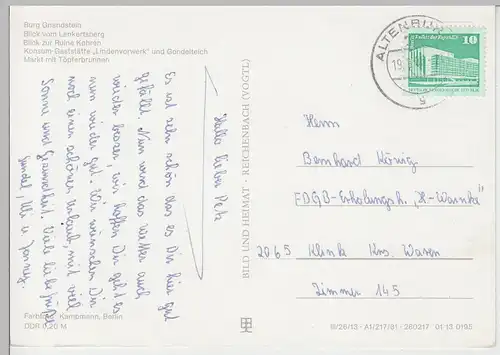 Burg Gnandstein
Blick vom Lenkertsberg
Blick zur Ruine Kohren
Konsum-Gaststätte „Lindenvorwerk“ und Gondelteich
Markt mit Töpferbrunnen
Hallo lieber Petz
Es ist sehr schön das es Dir hier gut
gefällt. Nun wird das Wetter auch
wieder besser, wir hoffen Dir geht es
nun wieder gut. Wir wünschen Dir
noch einen schönen Urlaub mit viel
Sonne und Gesundheit. Viele liebe Grüße
Farbfoto: Kampmann, Berlin
DDR 0,20 M
BILD UND HEIMAT · REICHENBACH (VOGTL)
ALTENBURG
19
10
Herrn
Bernhard König
FDGB-Erholungsh. „H.-Warnke“
2065 Klink Krs. Waren
Zimmer 145
III/26/13 · A1/217/81 · 260217 · 01 13 0195